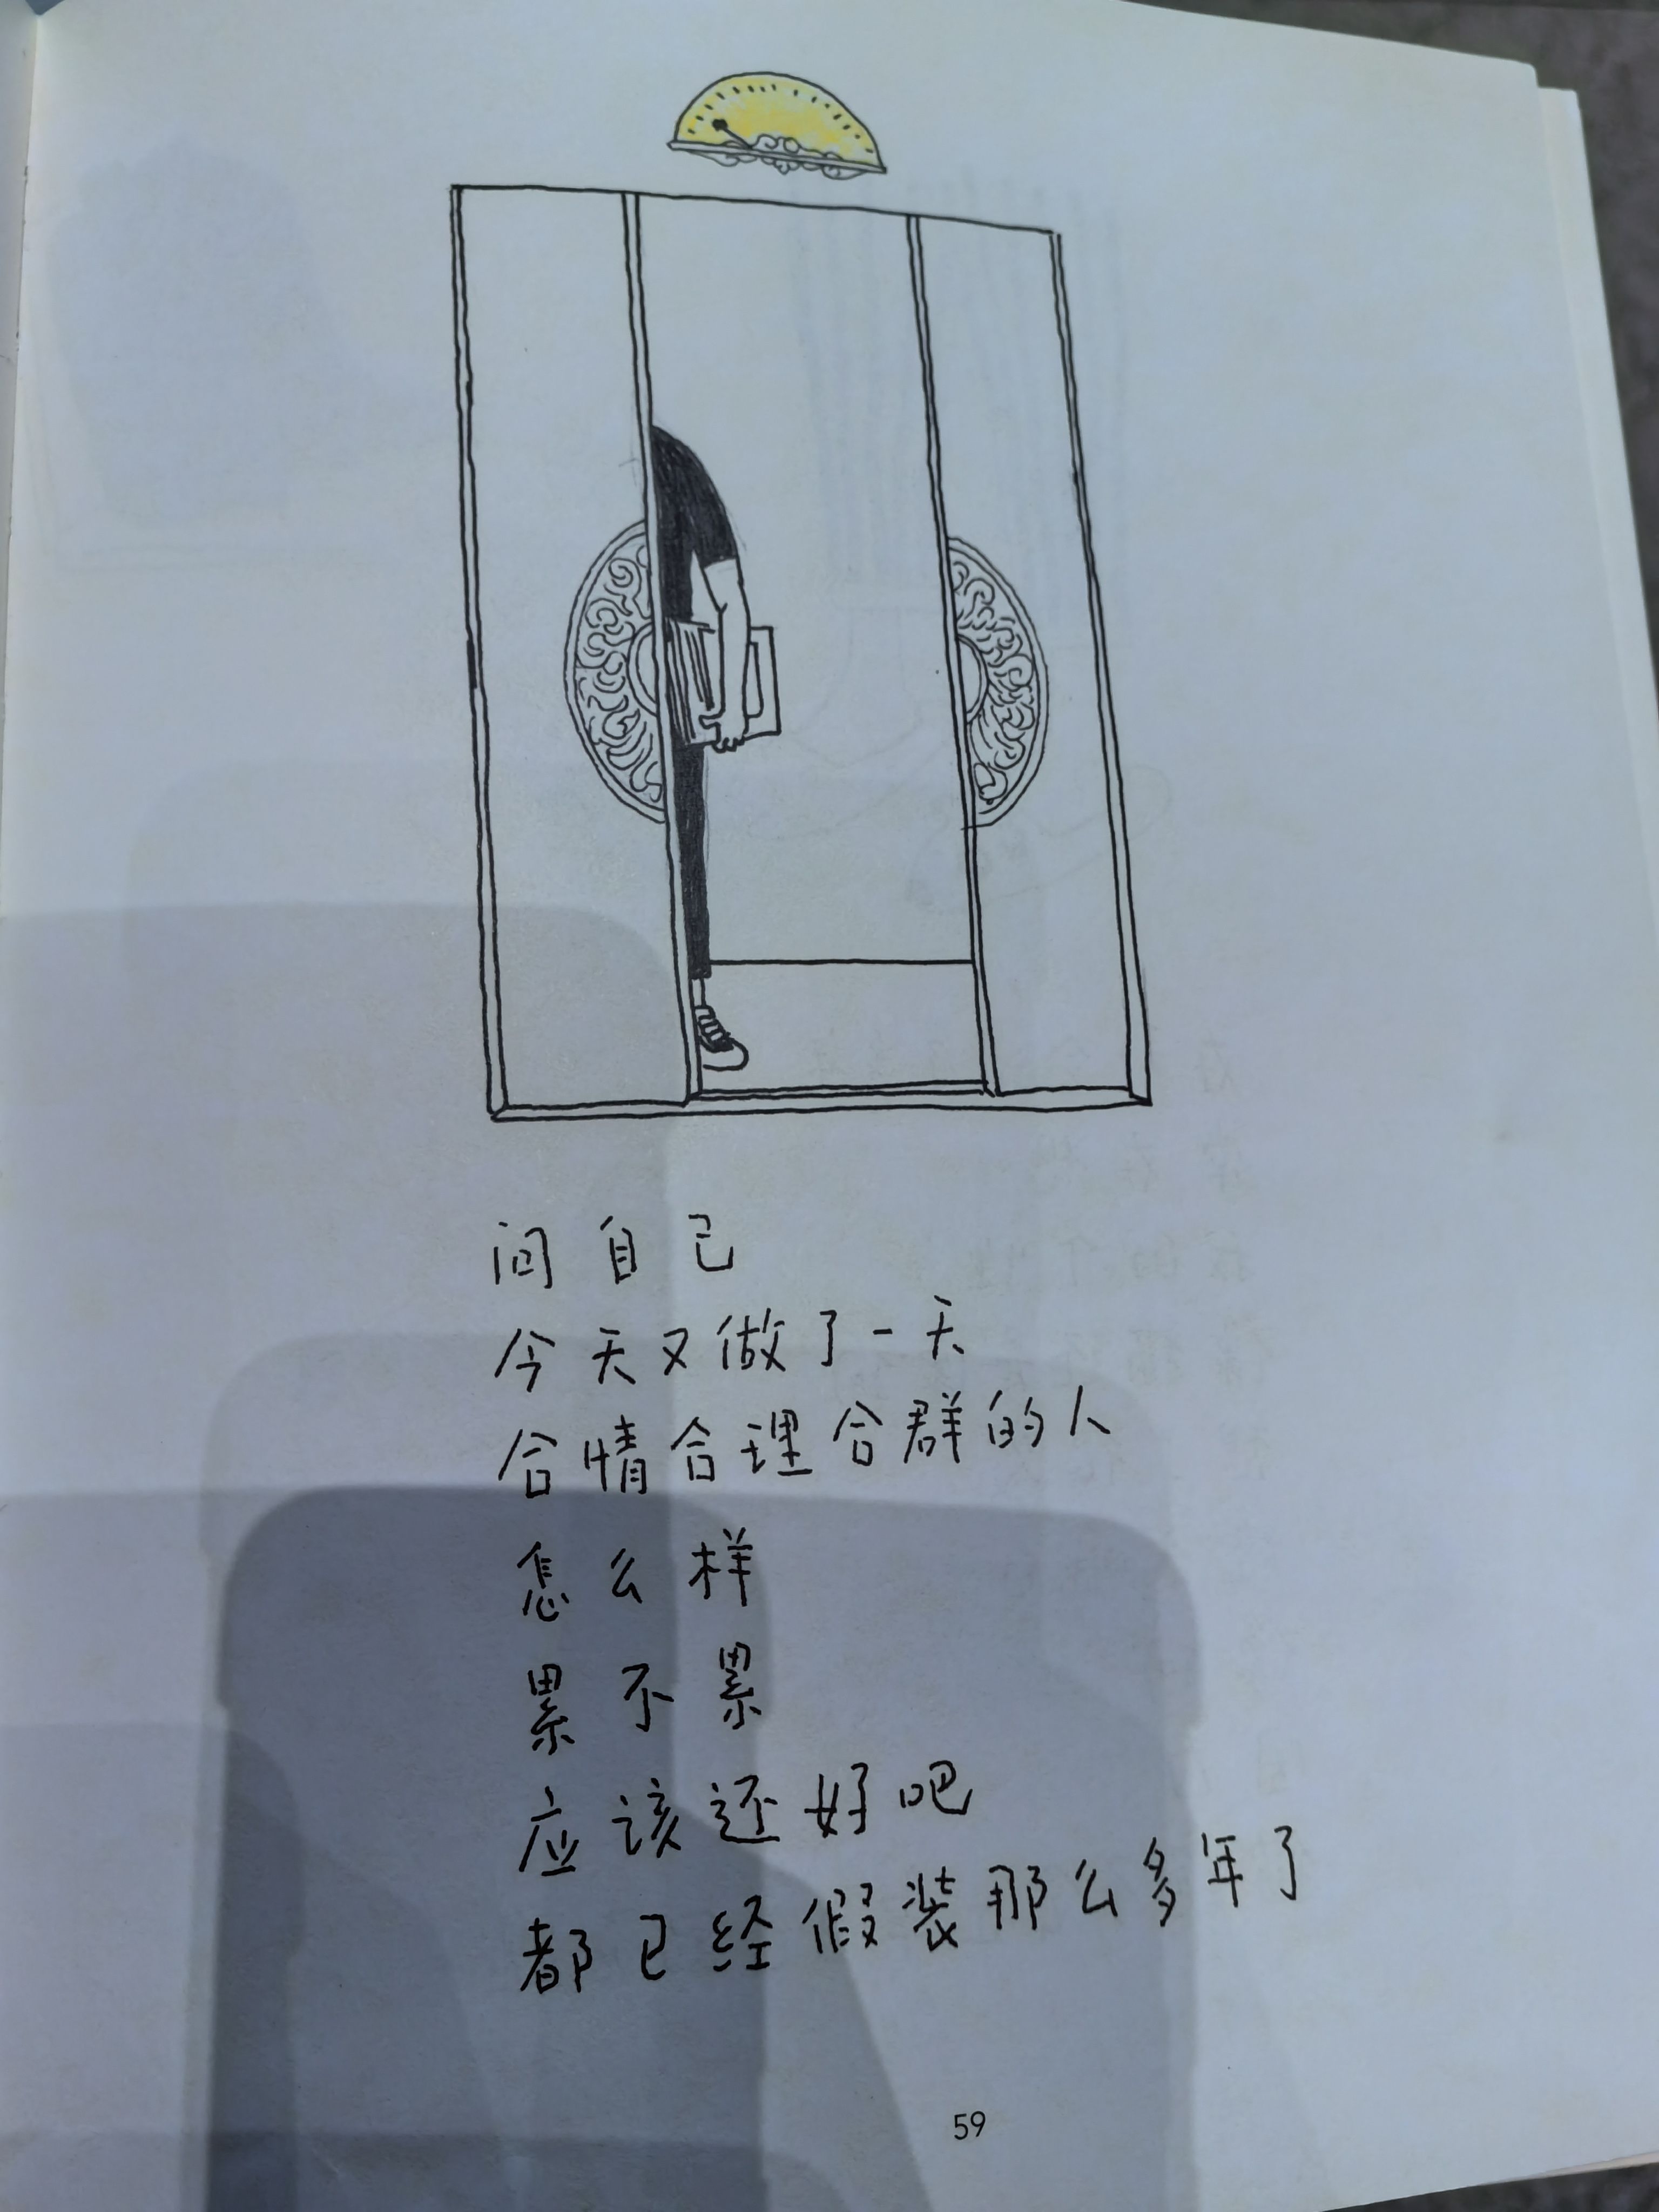 问自己
今天又做了一天
合情合理合群的人
怎么样
累不累
应该还好吧
都已经假装那么多年了
59